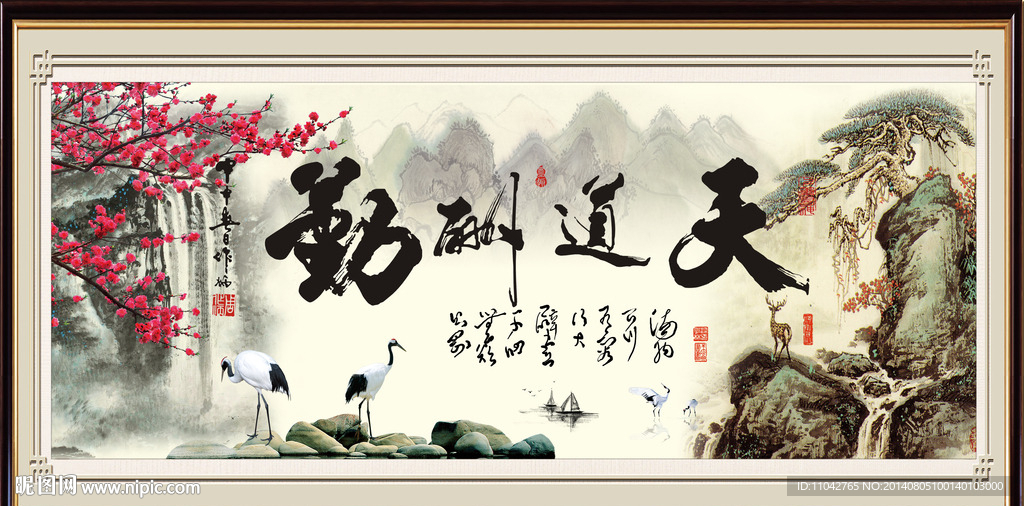 天道酬勤
海納
百川
有容
乃大
壁立
千仞
無欲
則剛
甲午春日作
昵图网 www.nipic.com
ID:11042765 NO:20140805100140103000